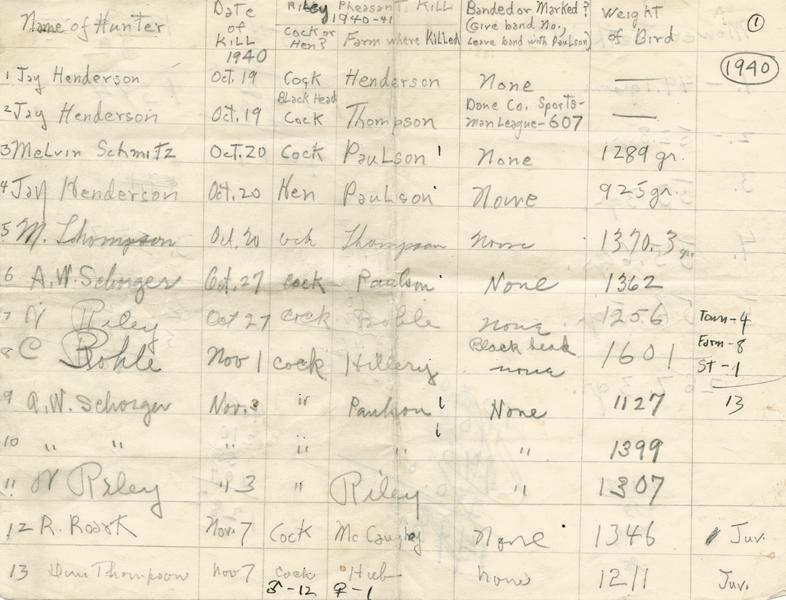 Riley Pheasant Kill 1940-41
①
1940
Name of Hunter | Date of Kill 1940 | Cock or Hen? | Farm where Killed | Banded or Marked? (Give band No. Leave band with Paulson) | Weight of Bird
1 Jay Henderson | Oct. 19 | Cock | Henderson | None | —
2 Jay Henderson | Oct. 19 | Black Head Cock | Thompson | Dane Co. Sports-man League-607 | —
3 Melvin Schmitz | Oct. 20 | Cock | Paulson | None | 1289 gr.
4 Jay Henderson | Oct. 20 | Hen | Paulson | None | 925 gr.
5 M. Thompson | Oct. 20 | ock | Thompson | none | 1370.3 gr.
6 A.W. Schorger | Oct. 27 | cock | Paulson | None | 1362
7 N Riley | Oct 27 | cock | Bohle | none | 1256 | Town-4
8 C Bohle | Nov 1 | cock | Hillery | Black head none | 1601 | Farm-8 St-1
9 A.W. Schorger | Nov. 3 | " | Paulson | None | 1127 | 13
10 " " | " | " | " | 1399
11 N Riley | " 3 | " | Riley | " | 1307
12 R. Roark | Nov. 7 | Cock | None | 1346 | Juv.
13 Thompson | Nov 7 | cock | Hub | none | 1211 | Juv.
♂-12 ♀-1